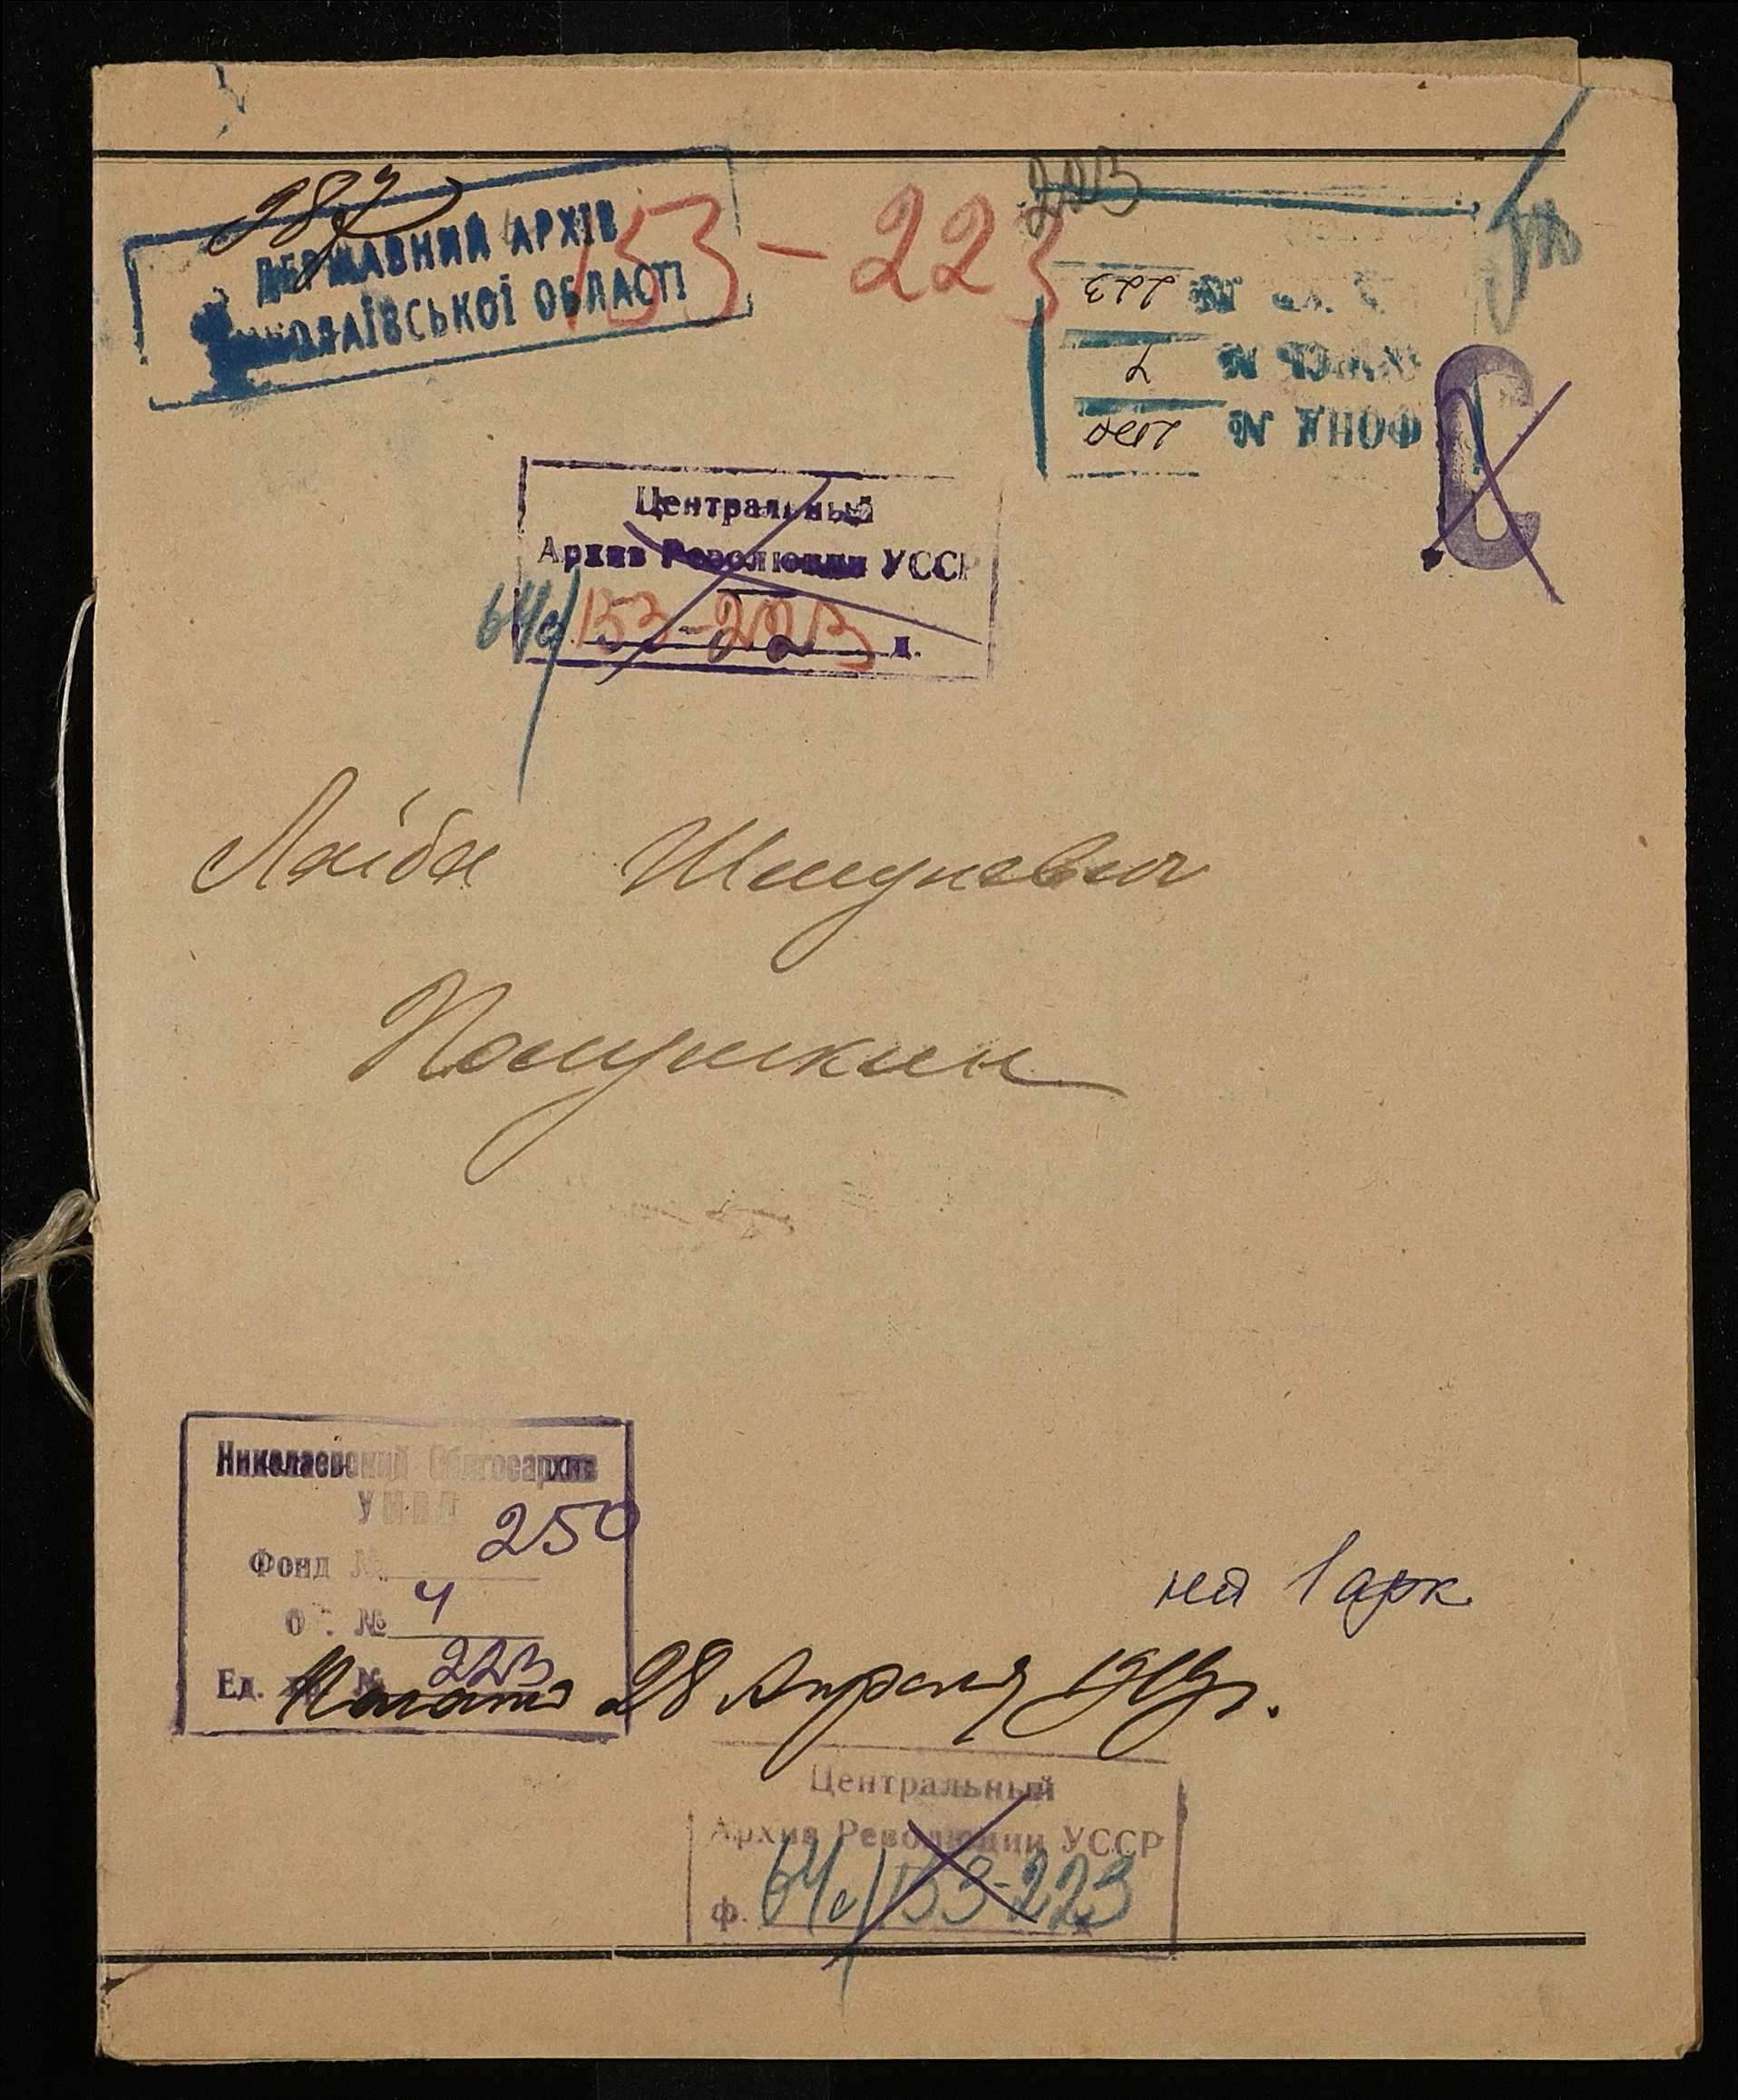 287
ДЕРЖАВНИЙ АРХІВ
МИКОЛАЇВСЬКОЇ ОБЛАСТІ
153-223
223
223
ФОНД №
С
Центральный
Архив Революции УССР
64с/153-223 д.
Лейба Шмулевич
Полушкин
Николаевский Облгосархив
УНВД
Фонд № 250
Оп. № 4
Ед. хр. № 223
на 1 арк.
Начато 28 Апреля 1919 г.
Центральный
Архив Революции УССР
ф. 64с/153-223